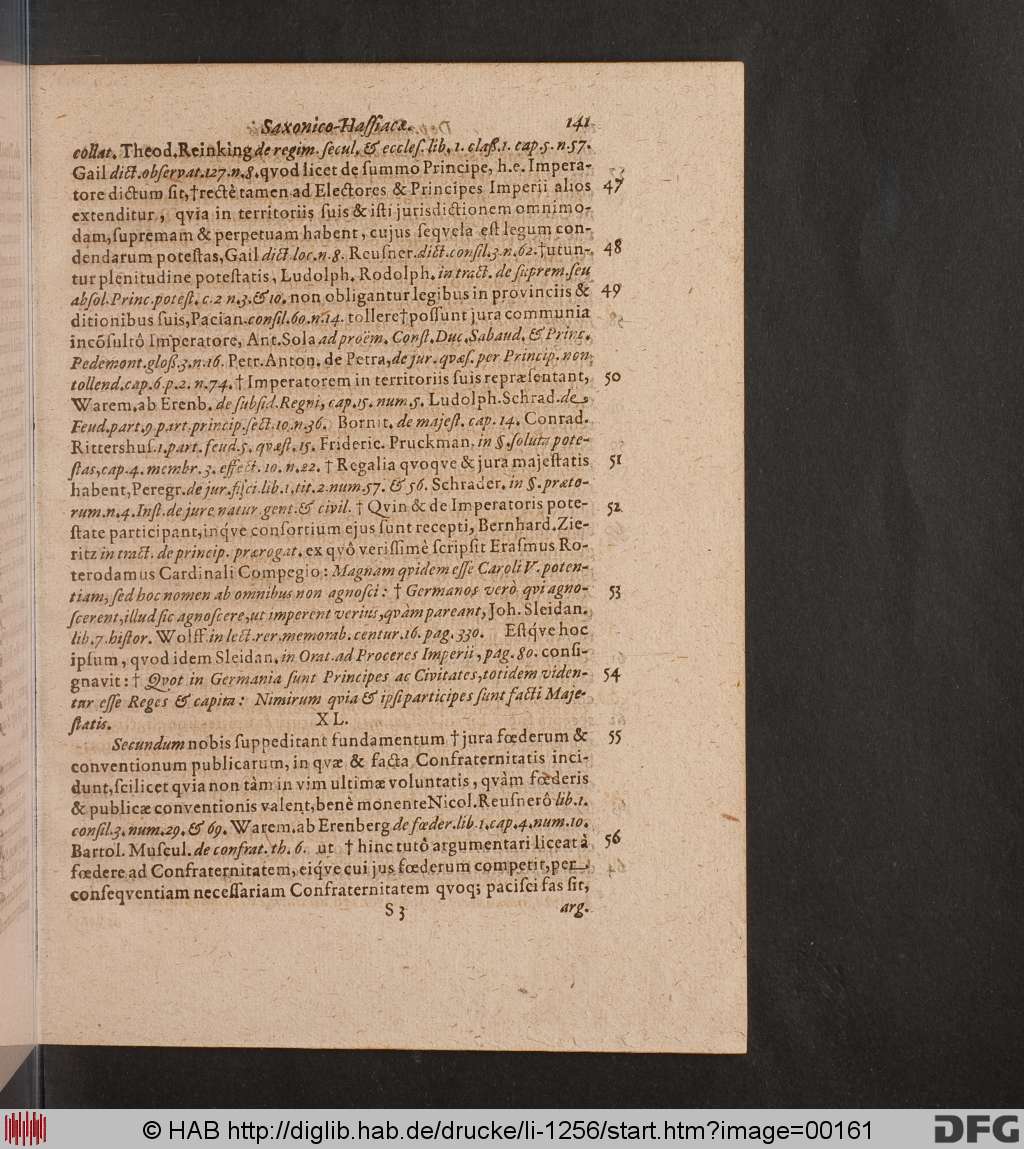 Saxonico-Haſſiacæ. 141
collat. Theod. Reinking de regim. ſecul. & eccleſ. lib. 1. claſſ. 1. cap. 5. n. 57.
Gail dict. obſervat. 127. n. 8. qvod licet de ſummo Principe, h.e. Impera-
tore dictum ſit, † rectè tamen ad Electores & Principes Imperii alios 47
extenditur, qvia in territoriis ſuis & iſti jurisdictionem omnimo-
dam, ſupremam & perpetuam habent, cujus ſeqvela eſt legum con-
dendarum poteſtas, Gail dict. loc. n. 8. Reuſner. dict. conſil. 3. n. 62. † utun- 48
tur plenitudine poteſtatis, Ludolph. Rodolph. in tract. de ſuprem. ſeu
abſol. Princ. poteſt. c. 2 n. 3. & 10. non obligantur legibus in provinciis & 49
ditionibus ſuis, Pacian. conſil. 60. n. 14. tollere † poſſunt jura communia
incõſultô Imperatore, Ant. Sola ad proëm. Conſt. Duc. Sabaud. & Princ.
Pedemont. gloſſ. 3. n. 16. Petr. Anton. de Petra, de jur. qvæſ. per Princip. non
tollend. cap. 6. p. 2. n. 74. † Imperatorem in territoriis ſuis repræſentant, 50
Warem. ab Erenb. de ſubſid. Regni, cap. 15. num. 5. Ludolph. Schrad. de
Feud. part. 9 part. princip. ſect. 10. n. 36. Bornit. de majeſt. cap. 14. Conrad.
Rittershuſ. 1. part. feud. 5. qvæſt. 15. Frideric. Pruckman. in §. ſoluta pote-
ſtas, cap. 4. membr. 3. effect. 10. n. 22. † Regalia qvoqve & jura majeſtatis 51
habent, Peregr. de jur. fiſci. lib. 1. tit. 2. num. 57. & 56. Schrader. in §. præto-
rum. n. 4. Inſt. de jure natur. gent. & civil. † Qvin & de Imperatoris pote- 52
ſtate participant, inqv́e conſortium ejus ſunt recepti, Bernhard. Zie-
ritz in tract. de princip. prærogat. ex qvô veriſſimè ſcripſit Eraſmus Ro-
terodamus Cardinali Compegio: Magnam qvidem eſſe Caroli V. poten-
tiam, ſed hoc nomen ab omnibus non agnoſci: † Germanos verò, qvi agno- 53
ſcerent, illud ſic agnoſcere, ut imperent verius, qvàm pareant, Joh. Sleidan.
lib. 7. hiſtor. Wolff. in lect. rer. memorab. centur. 16. pag. 330. Eſtqv́e hoc
ipſum, qvod idem Sleidan. in Orat. ad Proceres Imperii, pag. 80. conſi-
gnavit: † Qvot in Germania ſunt Principes ac Civitates, totidem viden- 54
tur eſſe Reges & capita: Nimirum qvia & ipſi participes ſunt facti Maje-
ſtatis. XL.
Secundum nobis ſuppeditant fundamentum † jura fœderum & 55
conventionum publicarum, in qvæ & facta Confraternitatis inci-
dunt, ſcilicet qvia non tàm in vim ultimæ voluntatis, qvàm fœderis
& publicæ conventionis valent, benè monente Nicol. Reuſnerô lib. 1.
conſil. 3. num. 29. & 69. Warem. ab Erenberg de fœder. lib. 1. cap. 4. num. 10.
Bartol. Muſcul. de confrat. th. 6. ut † hinc tutô argumentari liceat à 56
fœdere ad Confraternitatem, eiqv́e cui jus fœderum competit, per
conſeqventiam neceſſariam Confraternitatem qvoq; paciſci fas ſit,
S 3 arg.
© HAB http://diglib.hab.de/drucke/li-1256/start.htm?image=00161
DFG